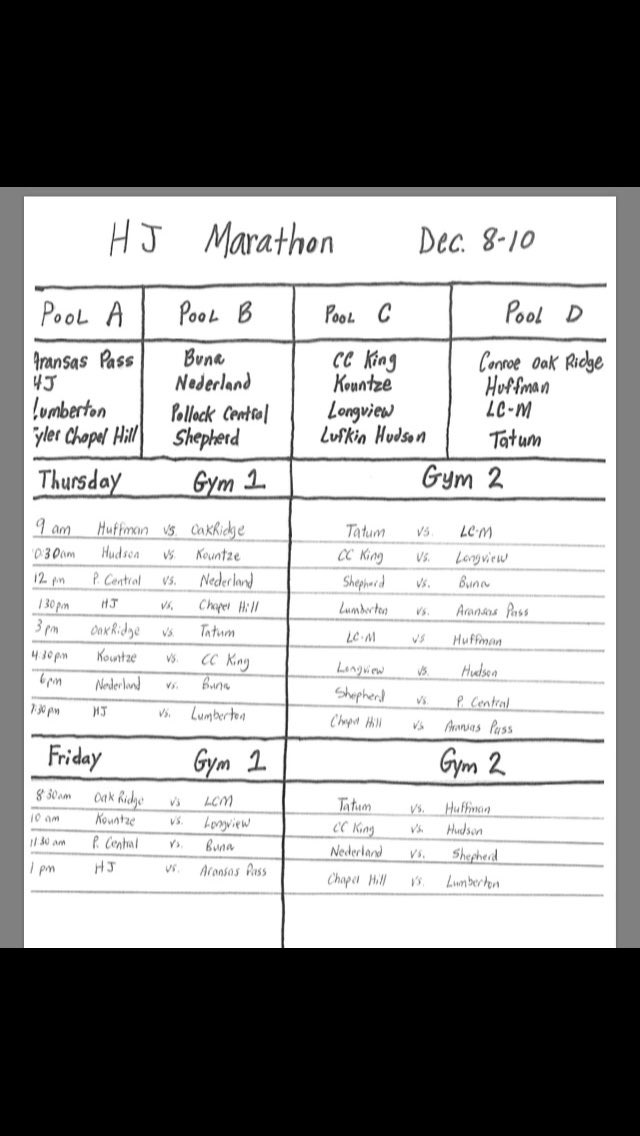 HJ Marathon Dec. 8-10
Pool A Pool B Pool C Pool D
Aransas Pass Buna CC King Conroe Oak Ridge
HJ Nederland Kountze Huffman
Lumberton Pollock Central Longview LC-M
Tyler Chapel Hill Shepherd Lufkin Hudson Tatum
Thursday Gym 1 Gym 2
9 am Huffman vs. OakRidge Tatum vs. LC-M
0:30am Hudson vs. Kountze CC King vs. Longview
12 pm P. Central vs. Nederland Shepherd vs. Buna
130pm HJ vs. Chapel Hill Lumberton vs. Aransas Pass
3 pm OakRidge vs. Tatum LC-M vs Huffman
4:30pm Kountze vs. CC King Longview vs. Hudson
6pm Nederland vs. Buna Shepherd vs. P. Central
7:30 pm HJ vs. Lumberton Chapel Hill vs Aransas Pass
Friday Gym 1 Gym 2
8:30am Oak Ridge vs LCM Tatum vs. Huffman
10 am Kountze vs. Longview CC King vs. Hudson
11:30 am P. Central vs. Buna Nederland vs. Shepherd
1 pm HJ vs. Aransas Pass Chapel Hill vs. Lumberton